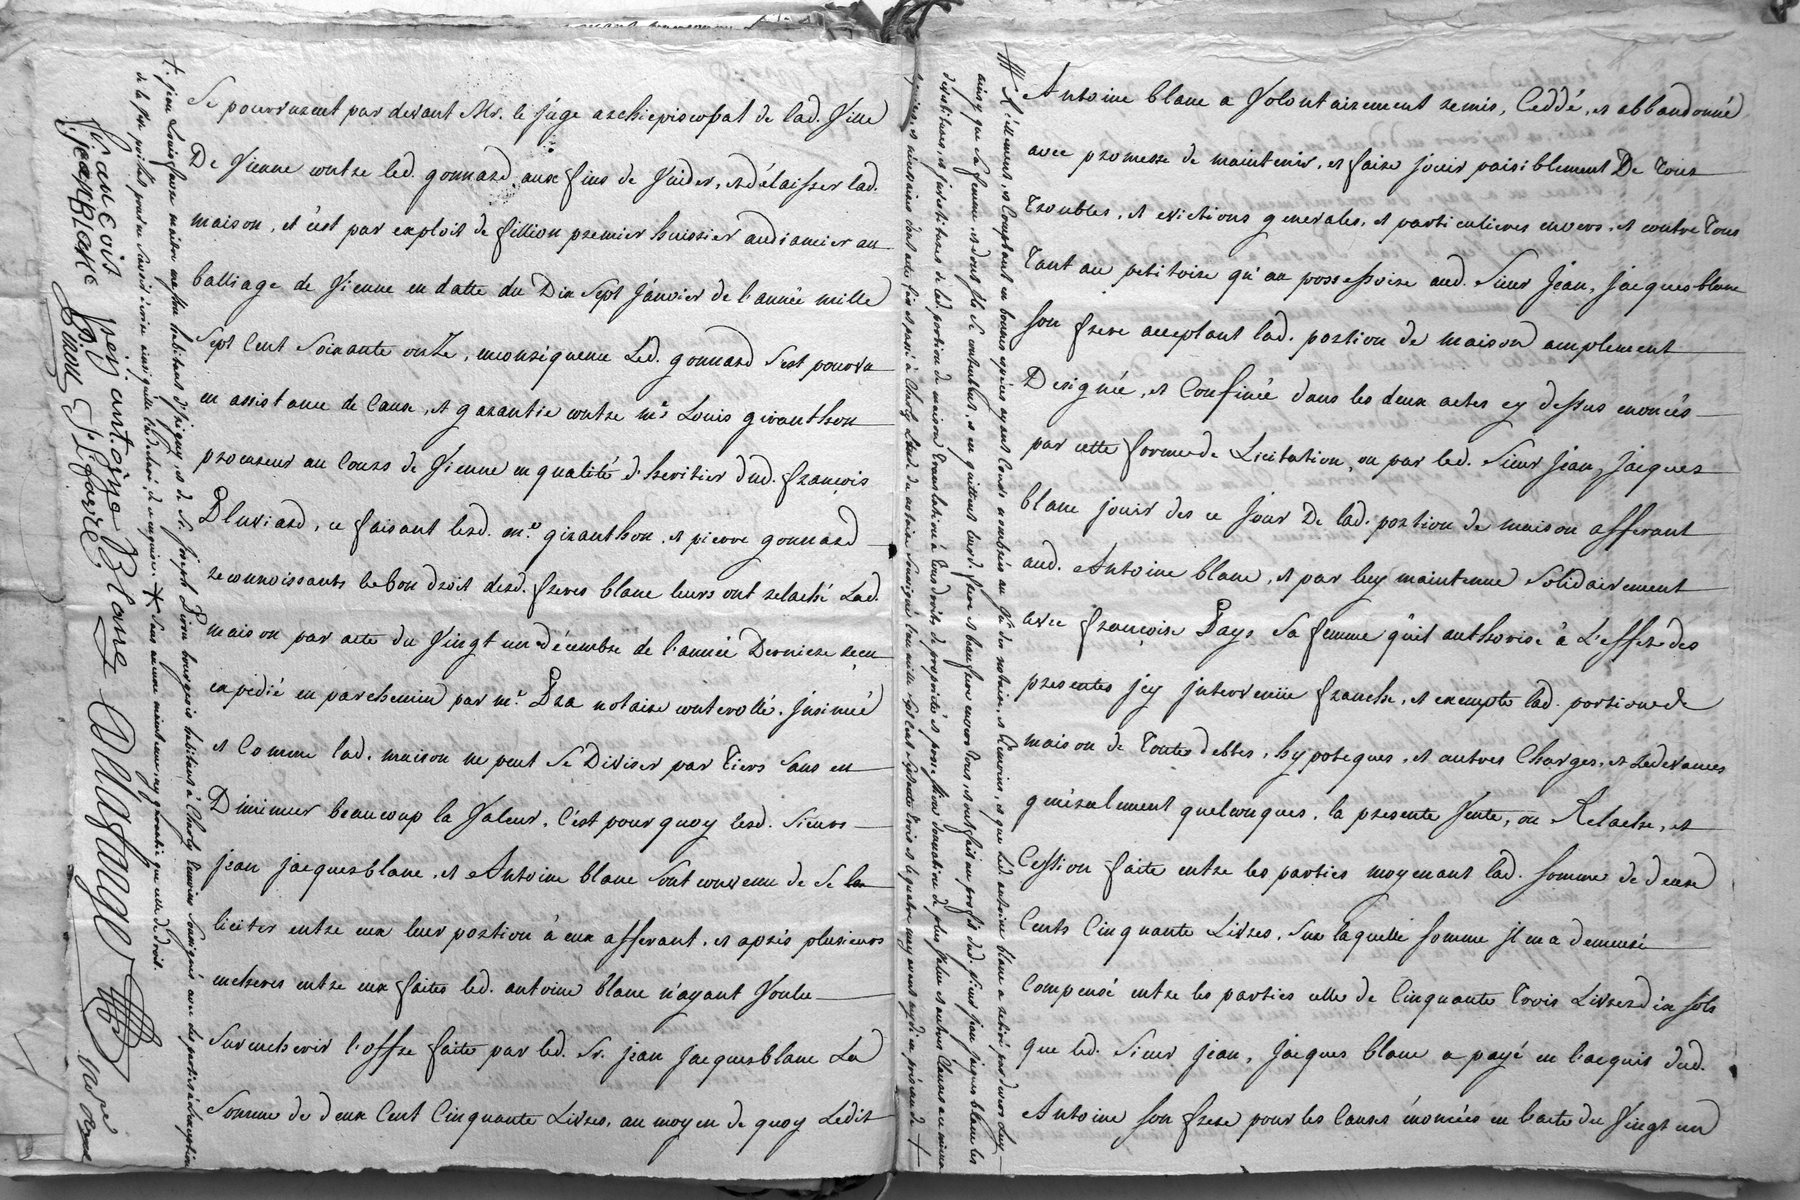 Se pourvurent par devant Mr. le juge archiepiscopal de lad. Ville
De Vienne contre led. gonnard, aux fins de Vuider, et délaisser lad.
maison, et c'est par exploit de fillion premier huissier audiancier au
balliage de Vienne en datte du Dix Sept Janvier de l'année mille
Sept Cent Soixante onze, inconsiquence Led. gonnard s'est pourvu
en assistance de Cause, et garantie contre me. Louis giranthon
procureur au Cours de Vienne en qualité d'heritier dud. françois
Pluviard, ce faisant lesd. me. giranthon, et pierre gonnard
reconnoissants le bon droit desd. freres blanc leurs ont relaché Lad.
maison par acte du Vingt un décembre de l'année Derniere
expedié en parchemin par me. Dra notaire controllé, Insinué
et Comme lad. maison ne peut Se Diviser par Tiers Sans en
Diminuer beaucoup la Valeur, C'est pourquoy Lesd. Sieurs
jean jacques blanc, et Antoine blanc Sont convenu de Se
liciter entre eux leur portion à eux afferant, et après plusieurs
encheres entre eux faites led. antoine blanc n'ayant Voulu
Surencherir l'offre faite par led. Sr. jean jacques blanc La
Somme de deux Cent Cinquante Livres, au moyen de quoy Ledit
jean Blanc
francois
per ant.oine Blanc
Pirou
S. L. favre
Alafange nore
+. jean Louis favre maitre habitant d'Epigny, et de Sr. joseph Pirou bourgeois habitant à Charly temoins Soussignés avec les parties à L'exception
de la Ste. pays pour ne Savoir ecrire ainsi qu'elle l'a declaré de ce enquise. + Sans autre maintenue ny garantie que celle de droit.
Antoine blanc a Volontairement remis, Ceddé, et abbandonné
avec promesse de maintenir, et faire jouir paisiblement De Tous
Troubles, et evictions generales, et particulieres envers, et contre Tous
Tant au petitoire qu'au possessoire aud. Sieur Jean, Jacques blanc
Son frere acceptant lad. portion de maison amplement
Designée, et Confinée dans les deux actes cy dessus enoncés
par cette forme de Licitation, ou par led. Sieur Jean, Jacques
blanc jouir des ce jour De lad. portion de maison afferant
aud. Antoine blanc, et par luy maintenue Solidairement
avec françoise Pays Sa femme qu'il authorise à L'effet des
presentes jcy jntervenüe franche, et exempte lad. portion de
maison de Toutes debtes, hypoteques, et autres Charges, et redevances
generalement quelconques, la presente Vente, ou Relache, et
Cession faite entre les parties moyenant lad. Somme de deux
Cents Cinquante Livres, Sur laquelle Somme jl en a demeuré
Compensé entre les parties celle de Cinquante Trois Livres dix sols
que led. Sieur Jean, Jacques blanc a payé en l'acquit dud.
Antoine Son frere pour les Causes énoncées en l'acte du Vingt un